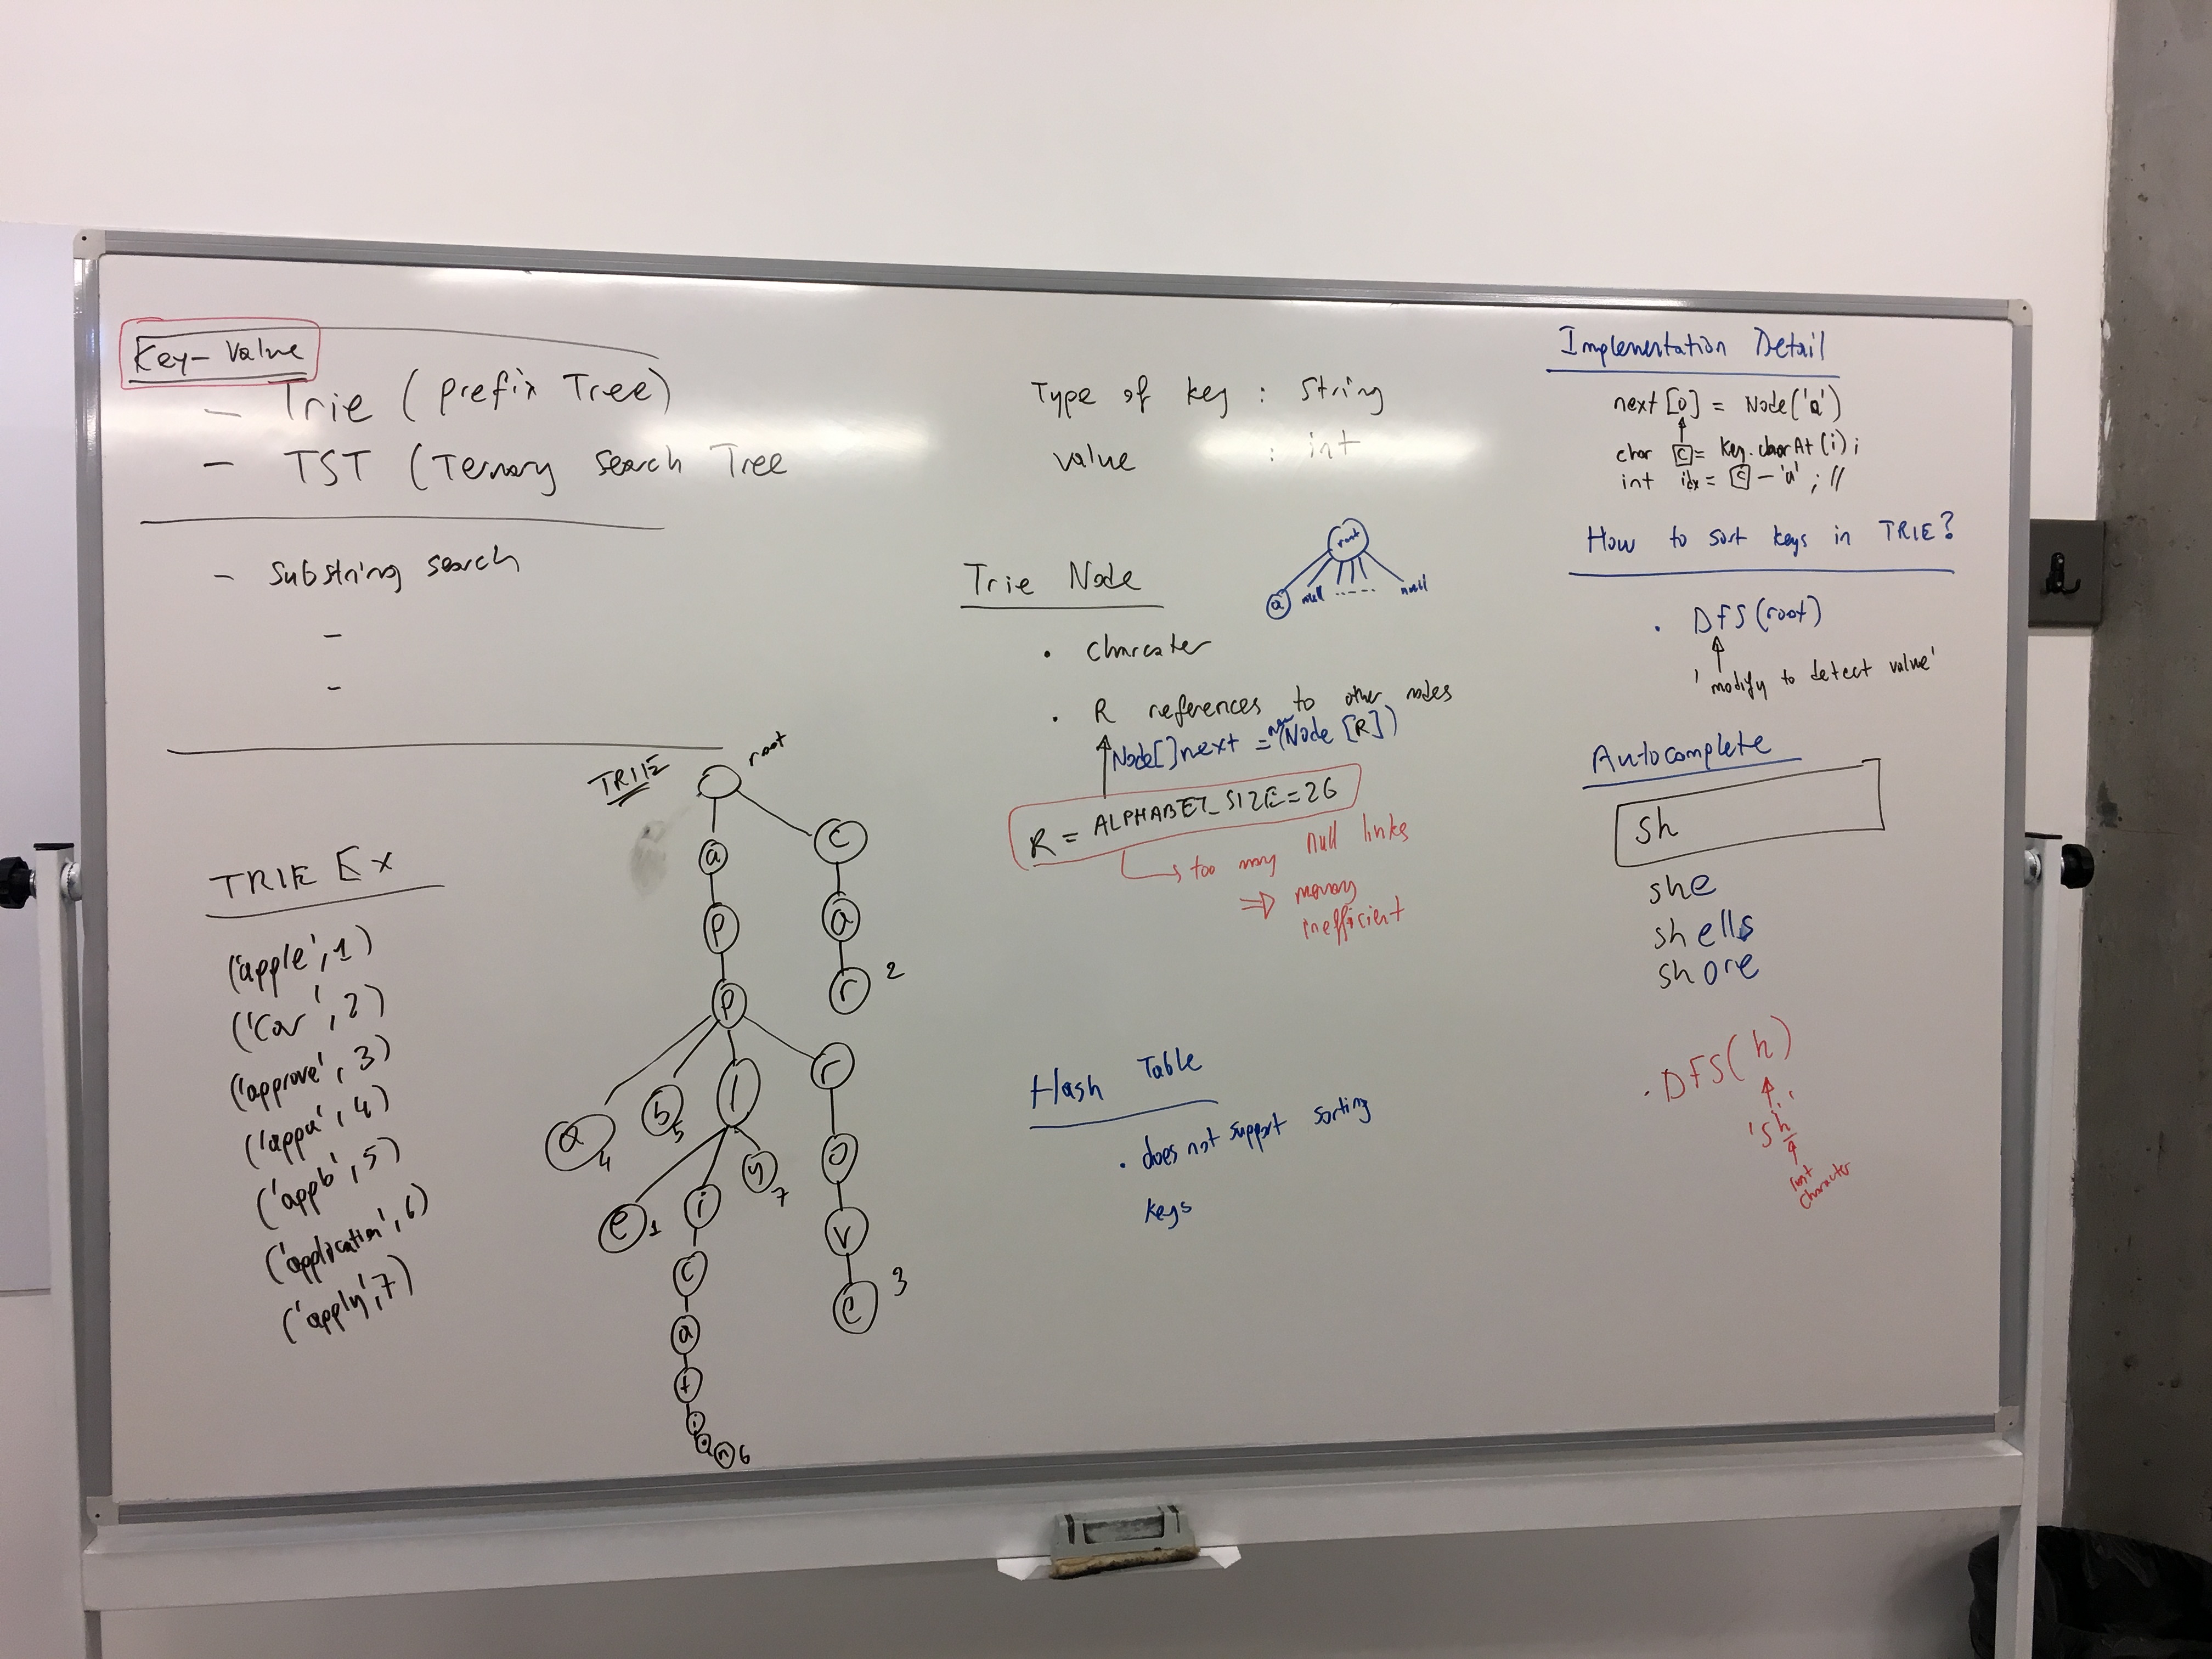 Key-Value
- Trie (prefix Tree)
- TST (Ternary Search Tree
- Substring search
-
-
TRIE Ex
('apple', 1)
('Car', 2)
('approve', 3)
('appa', 4)
('appb', 5)
('application', 6)
('apply', 7)
TRIE
root
a
c
p
a
p
r 2
a 4
b 5
l
r
e 1
i
y 7
o
c
v
a
e 3
t
i
o
n 6
Type of key : String
value : int
Trie Node
root
a null ----- null
• charcater
• R references to other nodes
Node[] next = new (Node [R])
R = ALPHABET_SIZE=26
→ too many null links
⇒ memory
inefficient
Hash Table
• does not support sorting
keys
Implementation Detail
next [0] = Node('a')
char c = key.charAt(i);
int idx = c - 'a'; //
How to sort keys in TRIE?
• DFS(root)
'modify to detect value'
Autocomplete
sh
she
shells
shore
• DFS(h)
'sh'
last
character